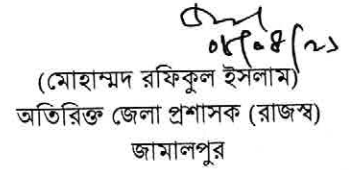 ০৮/০৪/২১
(মোহাম্মদ রফিকুল ইসলাম)
অতিরিক্ত জেলা প্রশাসক (রাজস্ব)
জামালপুর